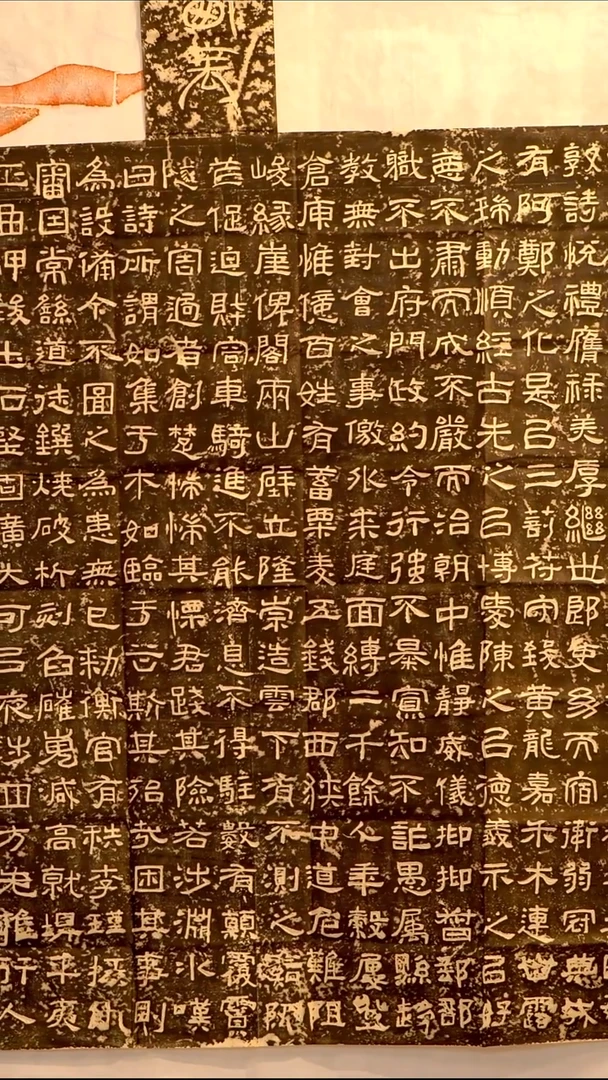 敦詩悅禮膺祿美厚繼世郎吏幼而宿衛弱冠典城
有阿鄭之化是以三剖符守致黃龍嘉禾木連甘露
之瑞動順經古先之以博愛陳之以德義示之以好
惡不肅而成不嚴而治朝中惟靜威儀抑抑督郵部
職不出府門政約令行強不暴寡知不詐愚屬縣趍
教無對會之事儌外來庭面縛二千餘人年穀屢登
倉庾惟億百姓有蓄粟麦五錢郡西狹中道危難阻
峻緣崖俾閣兩山壁立隆崇造雲下有不測之谿阨
芢促迫財容車騎進不能濟息不得駐數有顛覆霣
隧之害過者創楚惴惴其慄君踐其險若涉淵冰嘆
曰詩所謂如集于木如臨于谷斯其殆哉困其事則
為設備今不圖之為患無已勑衡官有秩李瑾掾仇
審因常繇道徒鐉燒破析刻臽磪嵬減高就埤平夷
正曲柙致土石堅固廣大可以夜涉四方无雍行人